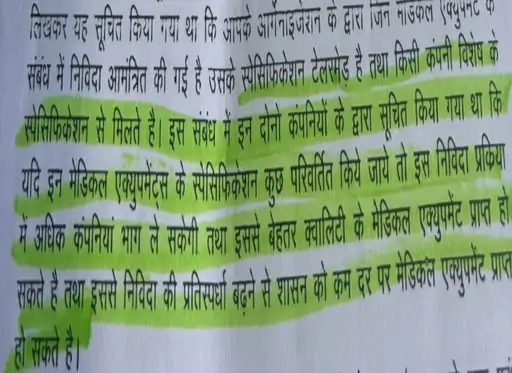 लिखकर यह सूचित किया गया था कि आपके आर्गेनाइजेशन के द्वारा जिन मेडिकल एक्युपमेंट के
संबंध में निविदा आमंत्रित की गई है उसके स्पेसिफिकेशन टेलरमेड है तथा किसी कंपनी विशेष के
स्पेसिफिकेशन से मिलते है। इस संबंध में इन दोनो कंपनियों के द्वारा सूचित किया गया था कि
यदि इन मेडिकल एक्युपमेंट्स के स्पेसिफिकेशन कुछ परिवर्तित किये जाये तो इस निविदा प्रकिया
में अधिक कंपनियां भाग ले सकेगी तथा इससे बेहतर क्वालिटी के मेडिकल एक्युपमेंट प्राप्त हो
सकते है तथा इससे निविदा की प्रतिस्पर्धा बढ़ने से शासन को कम दर पर मेडिकल एक्युपमेंट प्राप्त
हो सकते है।